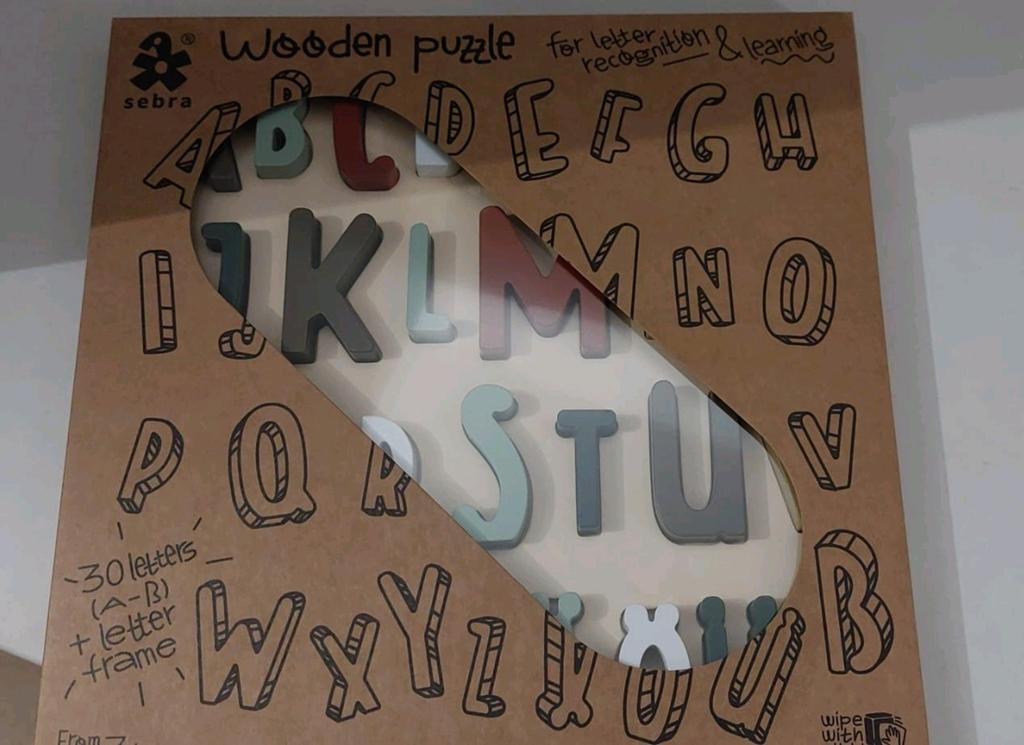 sebra®
Wooden puzzle
for letter recognition & learning
A B C D E F G H
I J K L M N O
P Q R S T U V
W X Y Z Ä Ö Ü ß
30 letters
(A-ß)
+ letter
frame
wipe
with